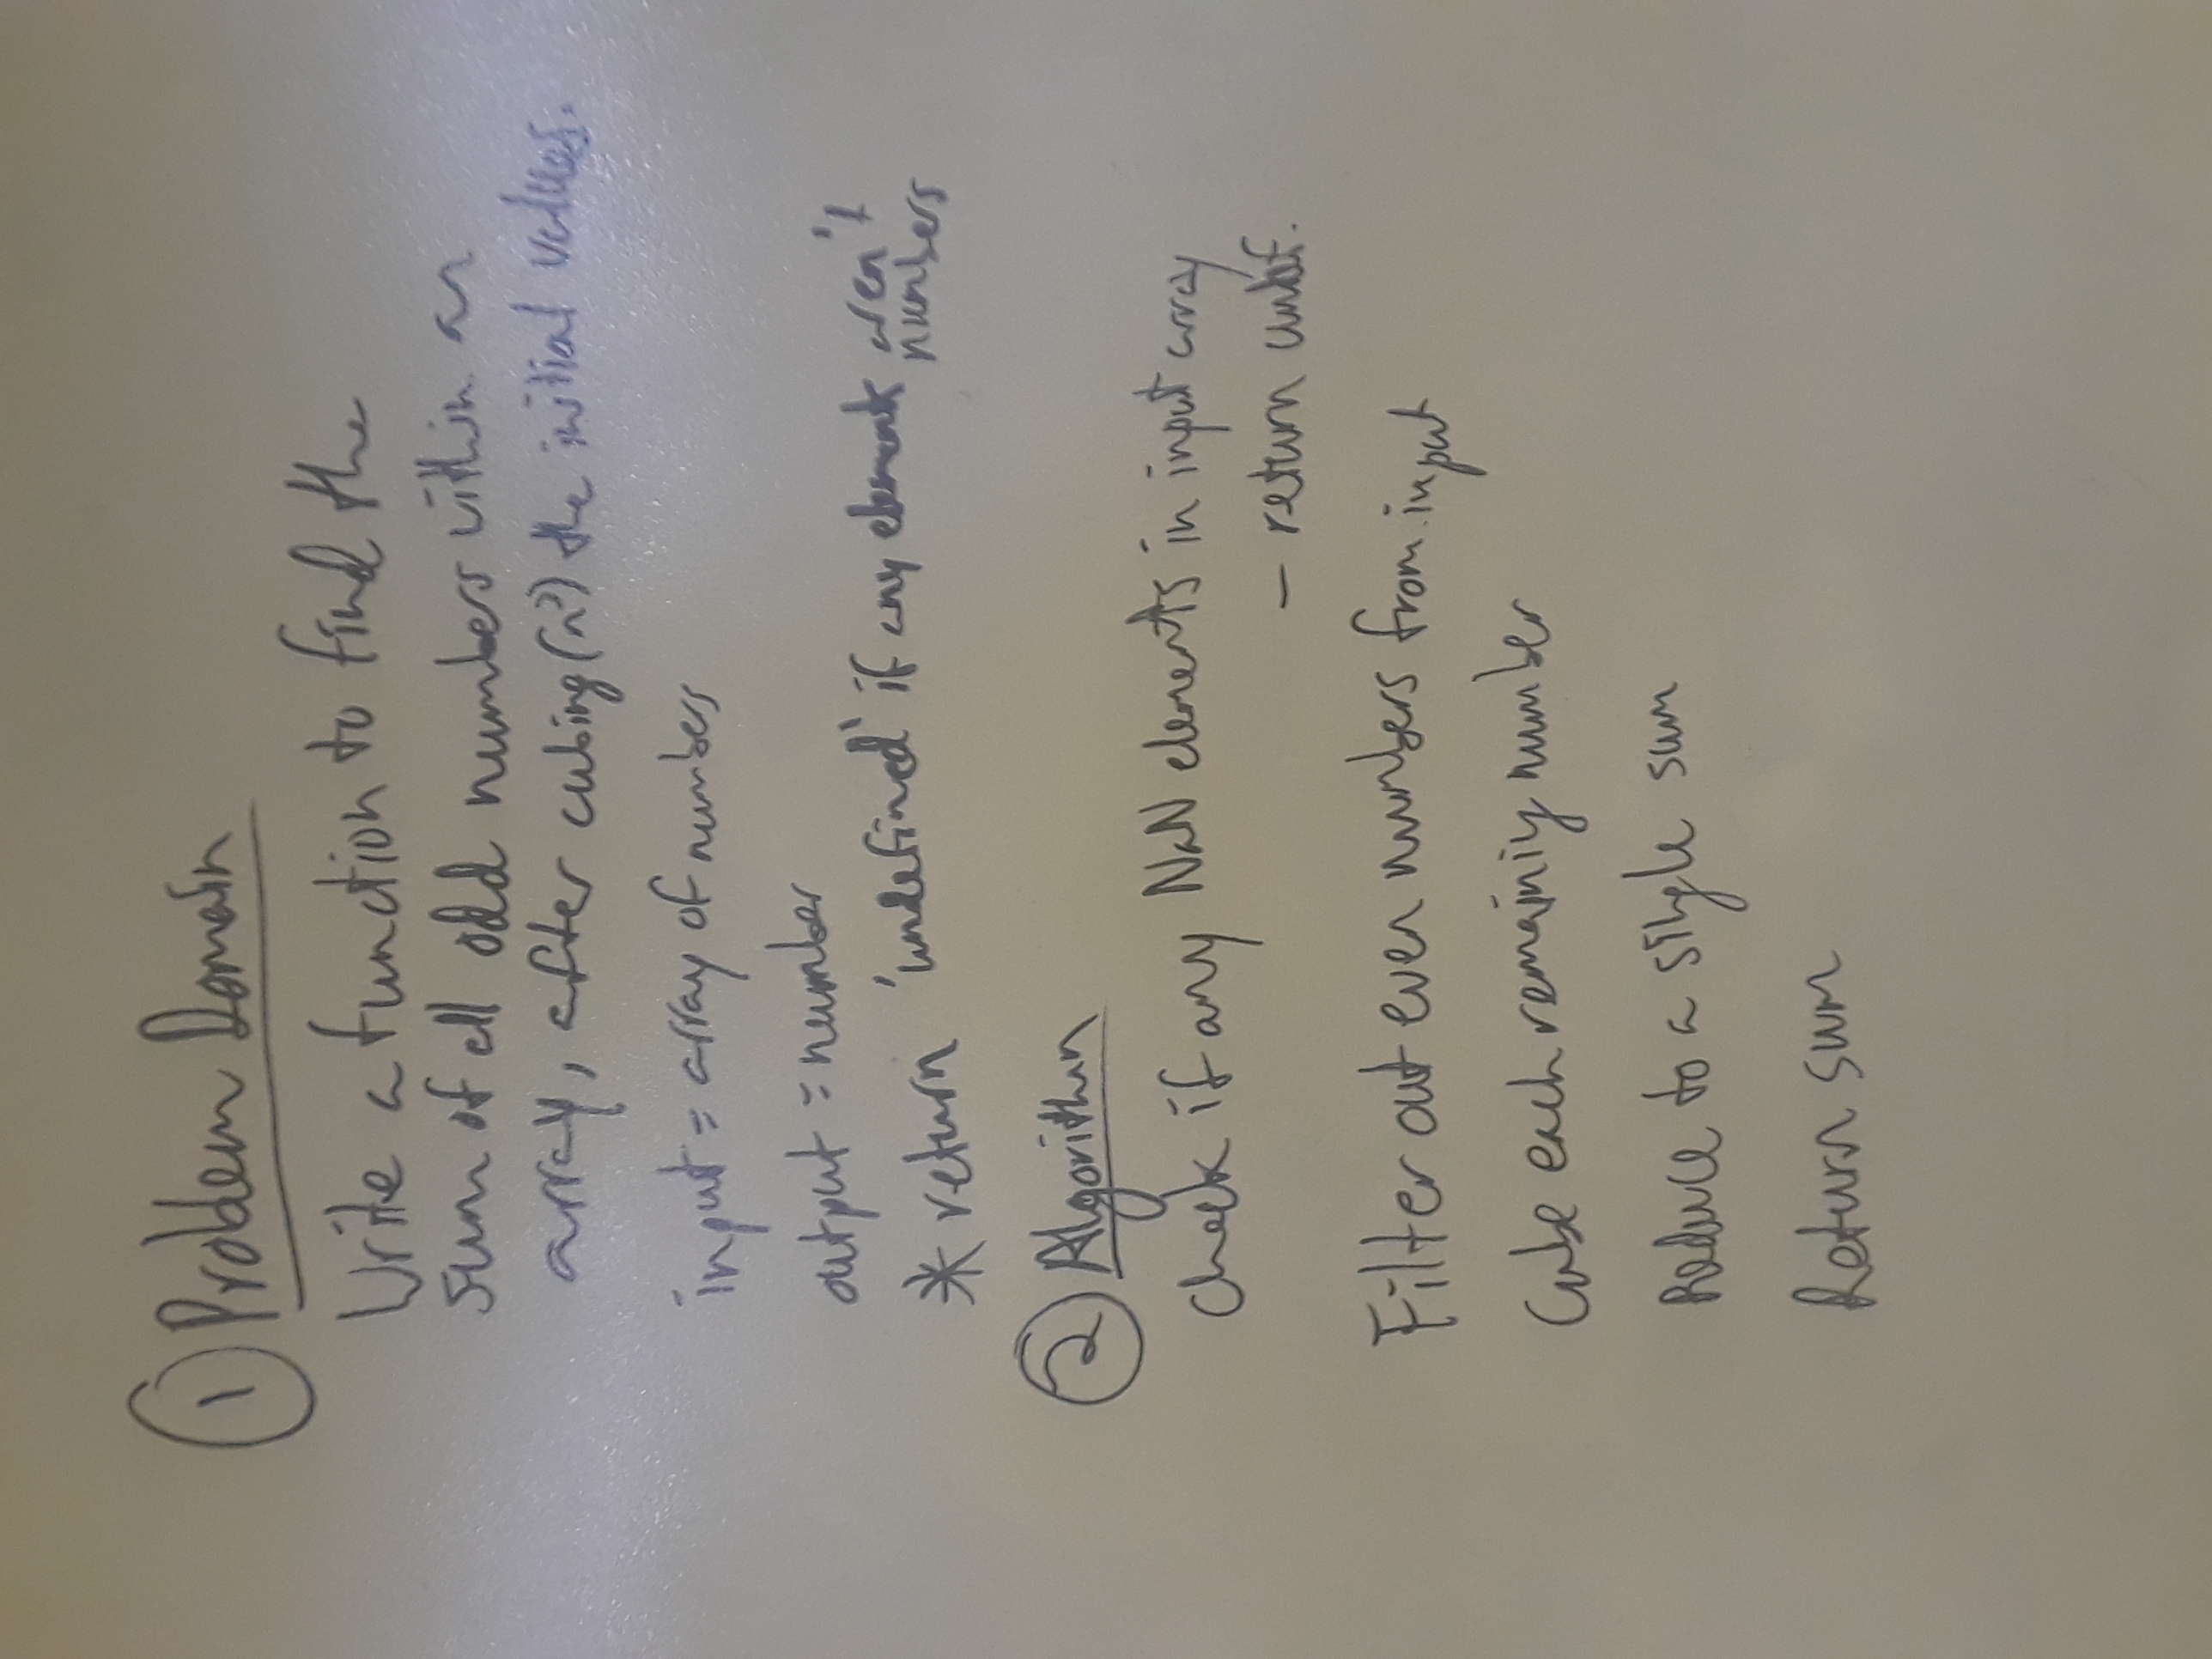 ① Problem Domain
Write a function to find the
sum of all odd numbers within an
array, after cubing (n³) the initial values.
input = array of numbers
output = number
* return 'undefined' if any elements aren't
numbers
② Algorithm
Check if any NaN elements in input array
- return undef.
Filter out even numbers from input
Cube each remaining number
Reduce to a single sum
Return sum